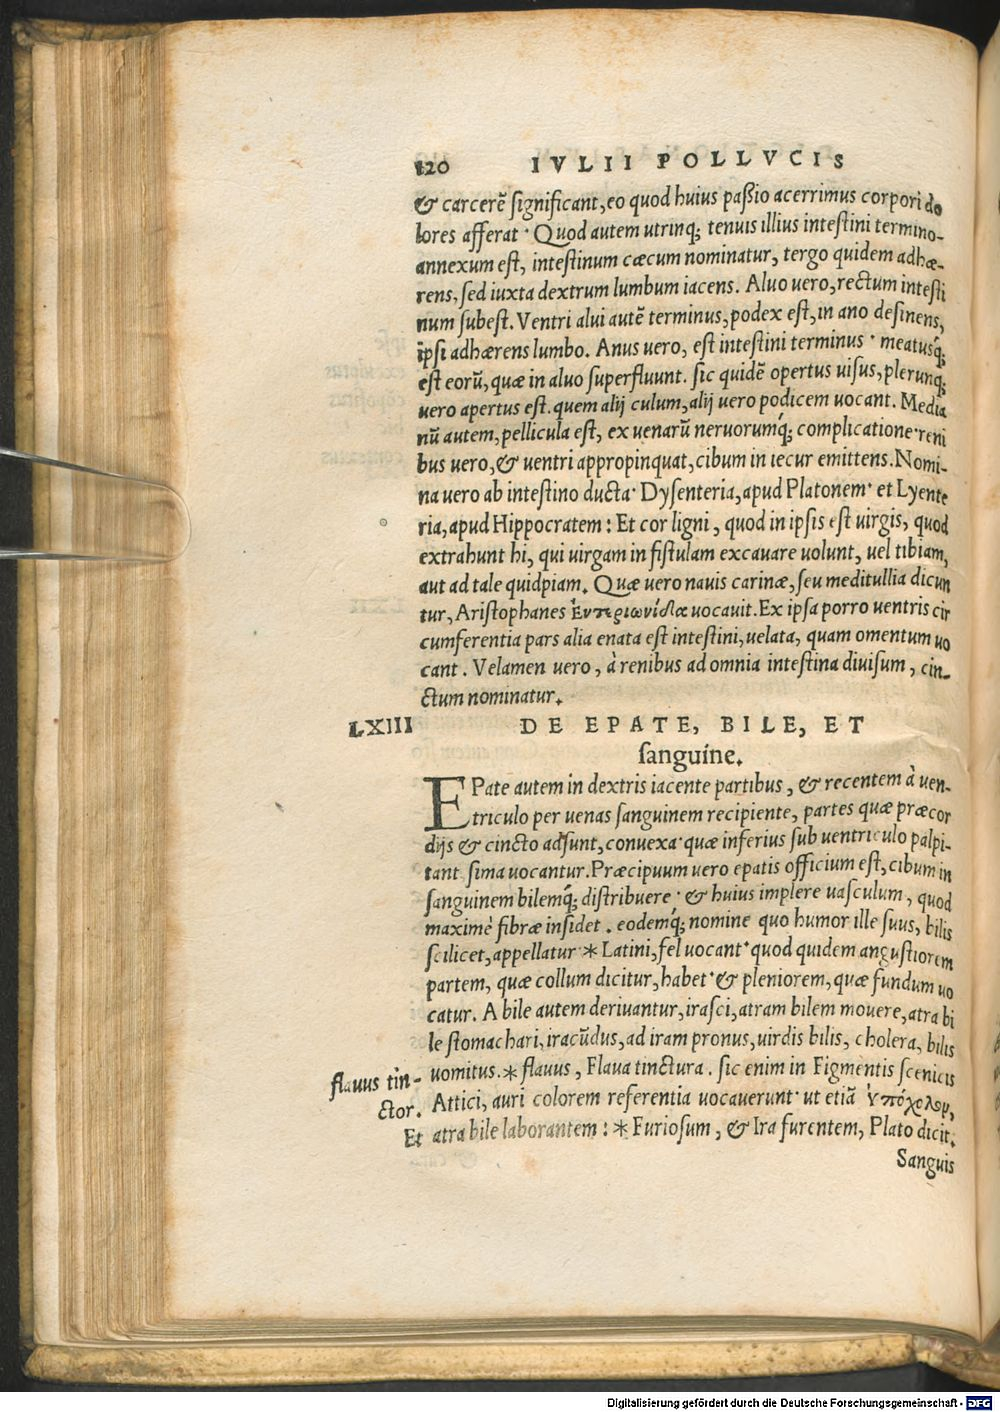 120 IVLII POLLVCIS
& carcerẽ significant, eo quod huius paßio acerrimus corpori do
lores afferat · Quod autem utrinq; tenuis illius intestini termino-
annexum est, intestinum cæcum nominatur, tergo quidem adhæ-
rens, sed iuxta dextrum lumbum iacens. Aluo uero, rectum intesti
num subest. Ventri alui autẽ terminus, podex est, in ano desinens,
ipsi adhærens lumbo. Anus uero, est intestini terminus · meatusq́;
est eorũ, quæ in aluo superfluunt. sic quidẽ opertus uisus, plerunq;
uero apertus est. quem alij culum, alij uero podicem uocant. Media
nũ autem, pellicula est, ex uenarũ neruorumq́; complicatione · reni
bus uero, & uentri appropinquat, cibum in iecur emittens. Nomi-
na uero ab intestino ducta · Dysenteria, apud Platonem · et Lyente
ria, apud Hippocratem : Et cor ligni, quod in ipsis est uirgis, quod
extrahunt hi, qui uirgam in fistulam excauare uolunt, uel tibiam,
aut ad tale quidpiam. Quæ uero nauis carinæ, seu meditullia dicun
tur, Aristophanes Ἐντεριωνίδας uocauit. Ex ipsa porro uentris cir
cumferentia pars alia enata est intestini, uelata, quam omentum uo
cant. Velamen uero, à renibus ad omnia intestina diuisum, cin-
ctum nominatur.
LXIII DE EPATE, BILE, ET
sanguine.
EPate autem in dextris iacente partibus, & recentem à uen-
triculo per uenas sanguinem recipiente, partes quæ præcor
dijs & cincto adsunt, conuexa · quæ inferius sub uentriculo palpi-
tant sima uocantur. Præcipuum uero epatis officium est, cibum in
sanguinem bilemq́; distribuere · & huius implere uasculum, quod
maximè fibræ insidet. eodemq́; nomine quo humor ille suus, bilis
scilicet, appellatur * Latini, fel uocant · quod quidem angustiorem
partem, quæ collum dicitur, habet · & pleniorem, quæ fundum uo
catur. A bile autem deriuantur, irasci, atram bilem mouere, atra bi
le stomachari, iracũdus, ad iram pronus, uirdis bilis, cholera, bilis
uomitus. * flauus, Flaua tinctura. sic enim in Figmentis scenicis
flauus tin-
ctor.
Attici, auri colorem referentia uocauerunt · ut etiã Ὑπόχολον,
Et atra bile laborantem : * Furiosum, & Ira furentem, Plato dicit.
Sanguis
Digitalisierung gefördert durch die Deutsche Forschungsgemeinschaft - DFG